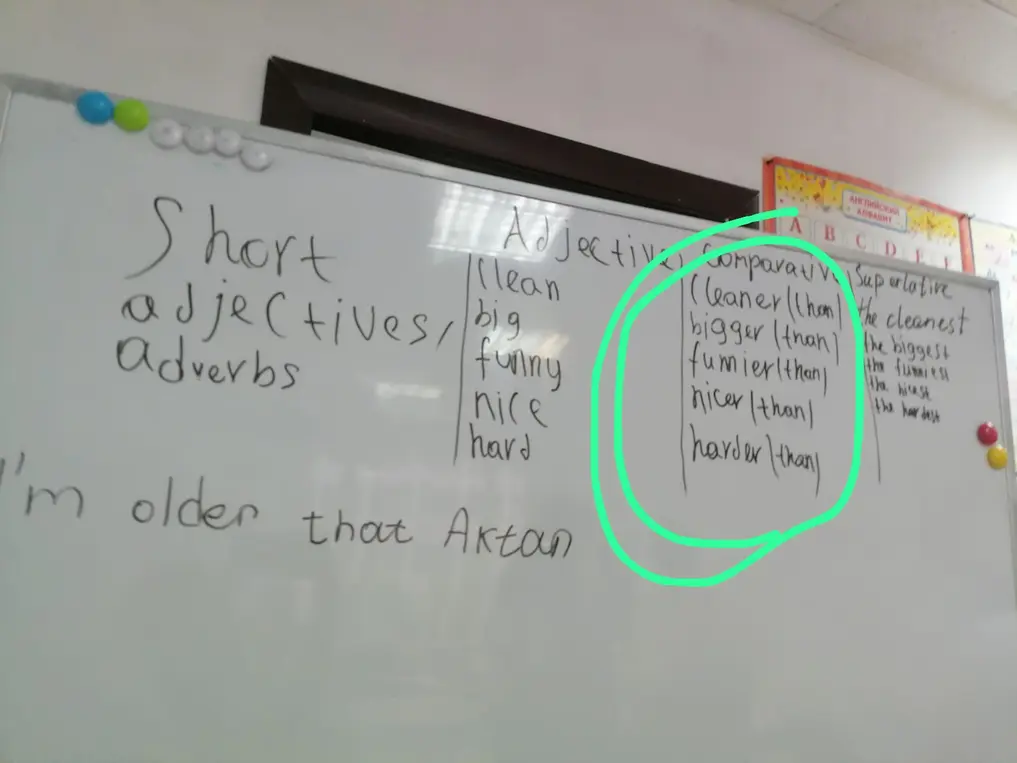 АНГЛИЙСКИЙ
АЛФАВИТ
A B C D E F
Short
adjectives,
adverbs
Adjective, Comparative, Superlative
clean cleaner (than) the cleanest
big bigger (than) the biggest
funny funnier (than) the funniest
nice nicer (than) the nicest
hard harder (than) the hardest
I'm older that Aktan